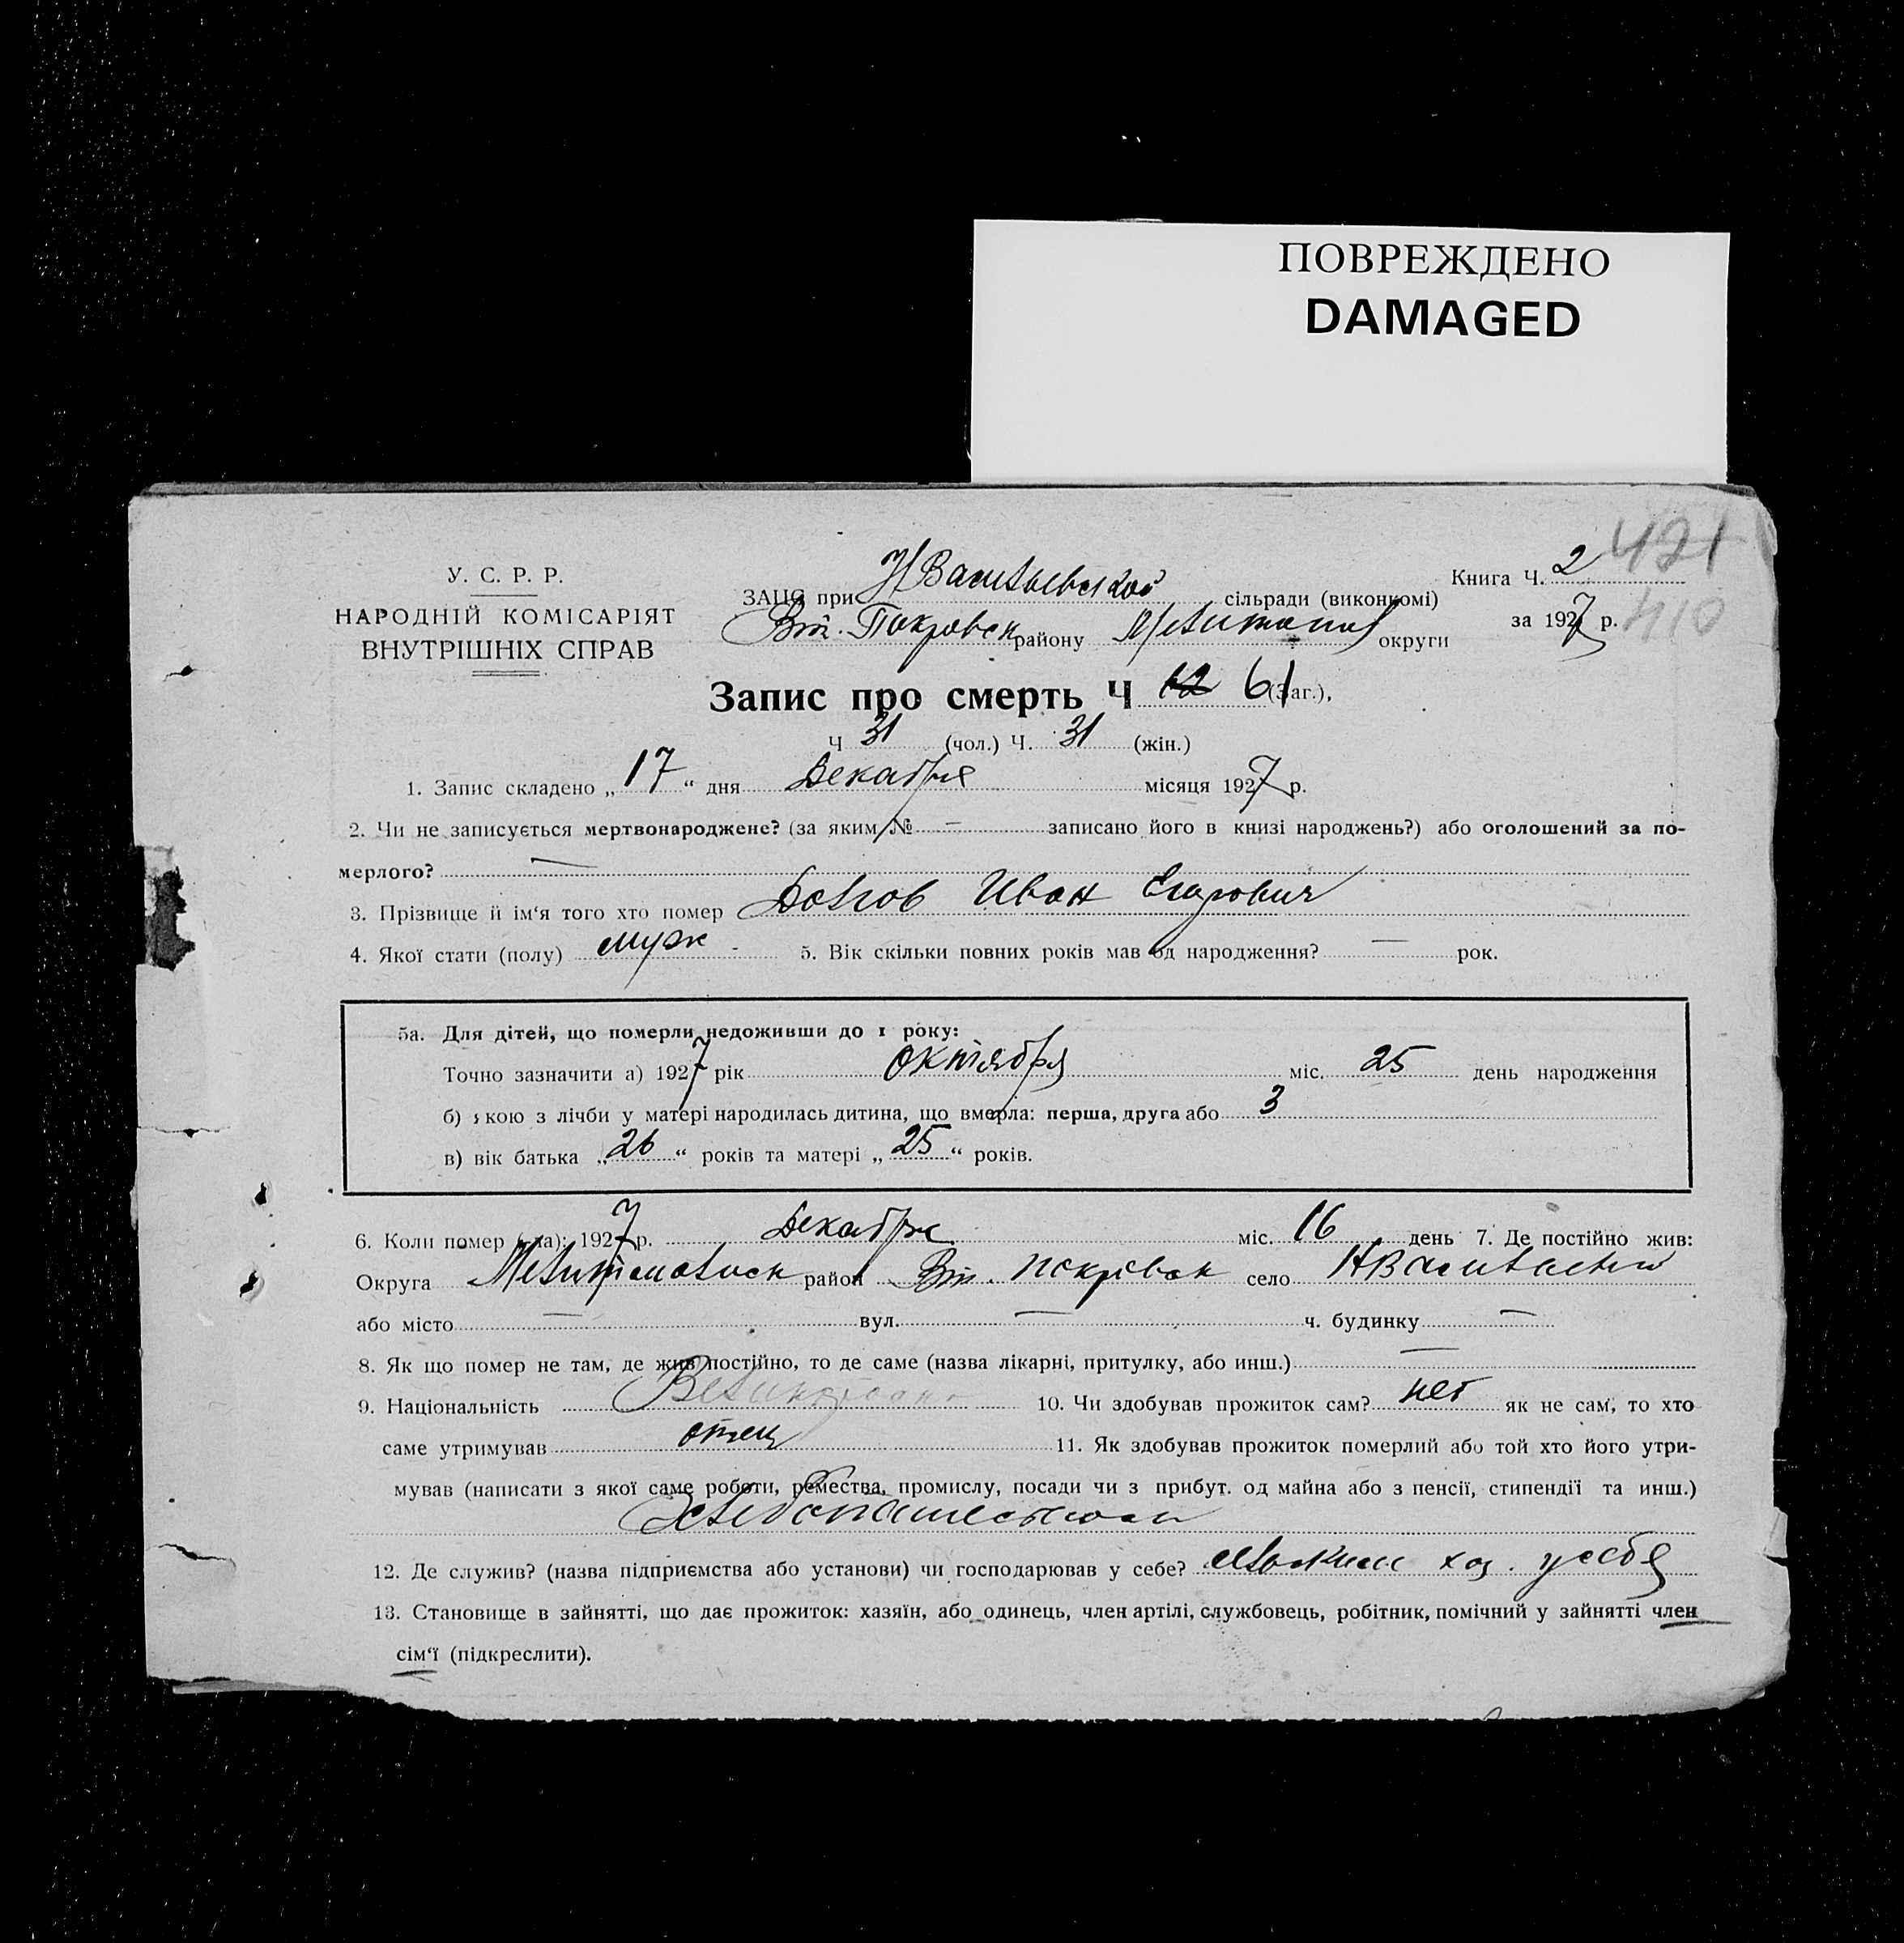 ПОВРЕЖДЕНО
DAMAGED
421
410
У. С. Р. Р.
НАРОДНІЙ КОМІСАРІЯТ
ВНУТРІШНІХ СПРАВ
ЗАЦС при Н Васильевской сільради (виконкомі)
Вт. Покровск району Мелитопол округи
Книга Ч. 2
за 1927 р.
Запис про смерть Ч 61 (Заг.),
Ч 31 (чол.) Ч. 31 (жін.)
1. Запис складено „ 17 “ дня Декабря місяця 1927 р.
2. Чи не записується мертвонароджене? (за яким № — записано його в книзі народжень?) або оголошений за по-
мерлого? —
3. Прізвище й ім‘я того хто помер Долгов Иван Егорович
4. Якої стати (полу) муж - 5. Вік скільки повних років мав од народження? — рок.
5а. Для дітей, що померли недоживши до 1 року:
Точно зазначити а) 1927 рік октября міс. 25 день народження
б) якою з лічби у матері народилась дитина, що вмерла: перша, друга або 3
в) вік батька „ 26 “ років та матері „ 25 “ років.
6. Коли помер (-ха): 1927 р. Декабря міс. 16 день 7. Де постійно жив:
Округа район Вт. Покровск село НВасильевка
або місто — вул. — ч. будинку —
8. Як що помер не там, де жив постійно, то де саме (назва лікарні, притулку, або инш.) —
9. Національність 10. Чи здобував прожиток сам? нет як не сам, то хто
саме утримував отец 11. Як здобував прожиток померлий або той хто його утри-
мував (написати з якої саме роботи, ремества, промислу, посади чи з прибут. од майна або з пенсії, стипендії та инш.)
Хлебопашеством
12. Де служив? (назва підприємства або установи) чи господарював у себе? хоз. у себя
13. Становище в зайнятті, що дає прожиток: хазяїн, або одинець, член артілі, службовець, робітник, помічний у зайнятті член
сім‘ї (підкреслити).